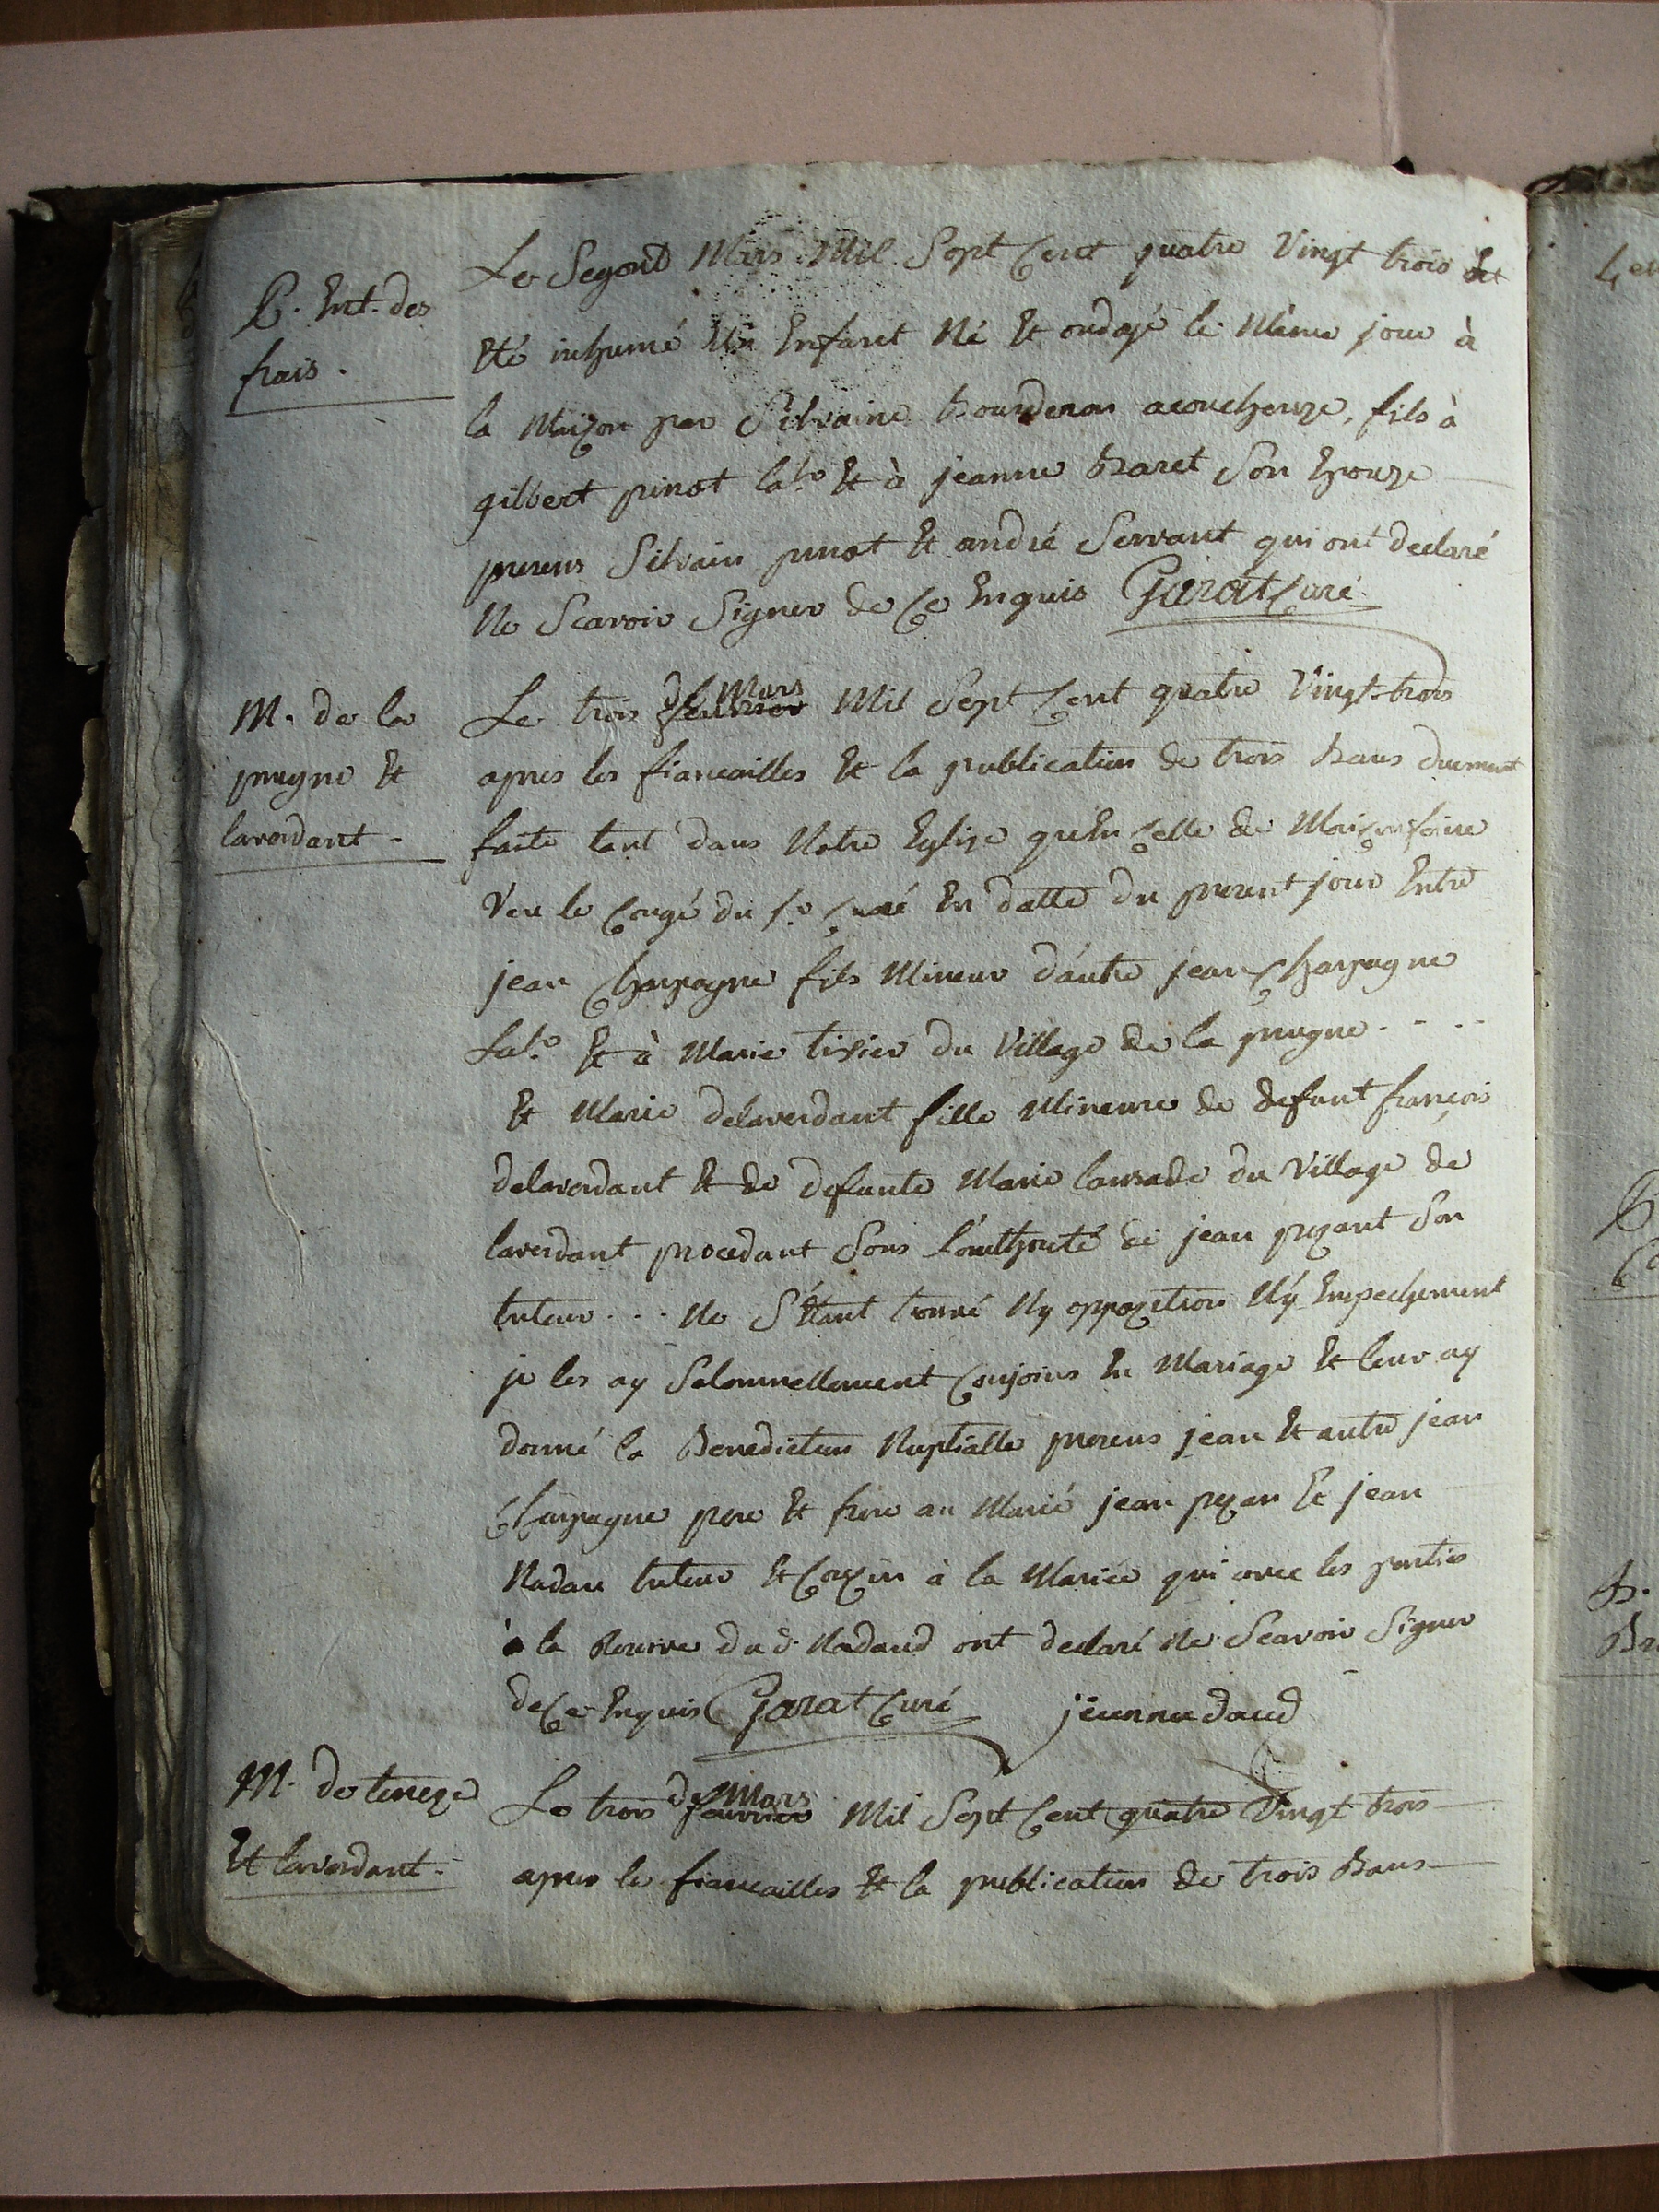 P. Ent. des
frais.
Le Segond Mars Mil Sept Cent quatre Vingt trois
Eté inhumé Un Enfant Né Et ondoyé le Même jour à
la Maizon par Silvaine Bourderon acoucheuze, fils à
gilbert pinot labr Et à jeanne Baret Son Epouze
prezens Silvain pinot Et andré Servant qui ont declaré
Ne Scavoir Signer de Ce Enquis Garat Curé.
M. de la
prugne Et
laverdant.
Le trois fevrier de Mars Mil Sept Cent quatre Vingt-trois
apres les fiancailles Et la publication de trois Bans duement
faite tant dans Notre Eglize qu'En Celle de Maizonfaine
Veu le Congé du Sr Curé En datte du prezent jour Entre
jean Chapagne fils Mineur d'autre jean Chapagne
Labr Et à Marie tixier du Village de la prugne . . . .
Et Marie delaverdant fille Mineure de defunt françois
delaverdant Et de defunte Marie du Village de
laverdant procedant Sous L'authorité de jean pezant Son
tuteur . . . Ne S'Etant trouvé Ny oppozition N'y Empechement
je les ay Solemnellement Conjoins En Mariage Et leur ay
donné la Benediction Nuptialle prezens jean Et autre jean
Chapagne pere Et frere au Marié jean pezan Et jean
Nadau tuteur Et Cozin à la Mariée qui avec les parties
à la Rezerve du d. Nadaud ont declaré Ne Scavoir Signer
de Ce Enquis Garat Curé jean nadaud
M. de
Et laverdant.
Le trois fevrier de Mars Mil Sept Cent quatre Vingt trois
apres les fiancailles Et la publication de trois Bans